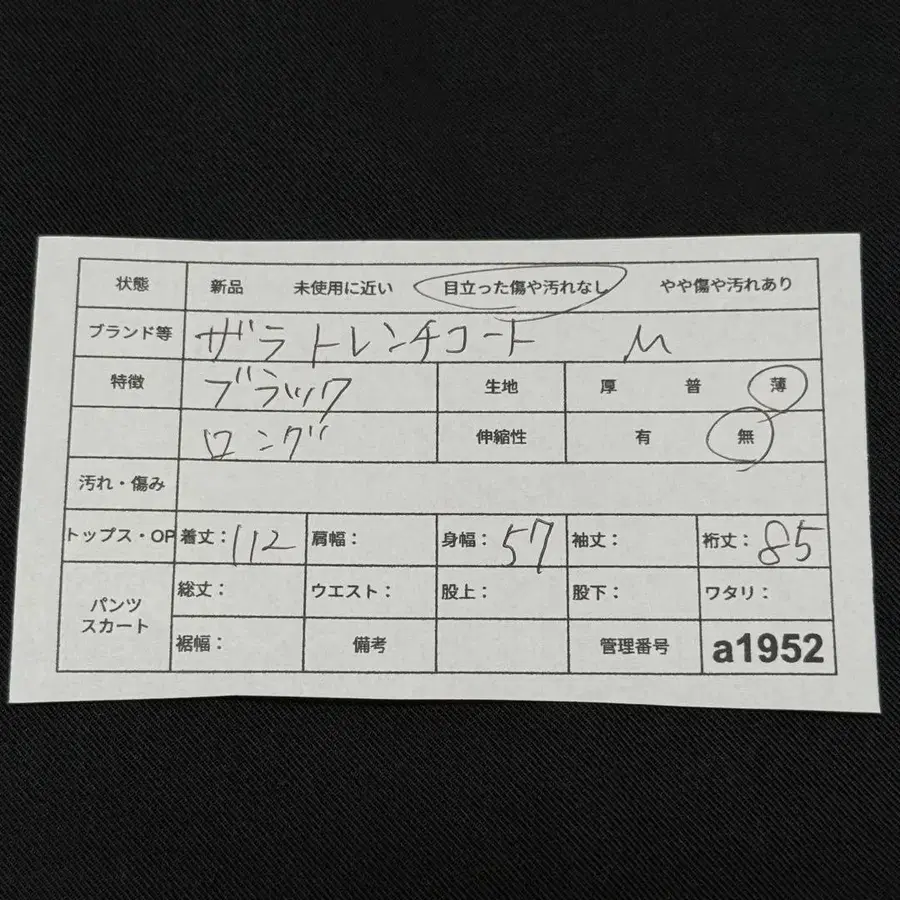 状態 新品 未使用に近い 目立った傷や汚れなし やや傷や汚れあり
ブランド等 ザラ トレンチコート M
特徴 ブラック 生地 厚 普 薄
ロング 伸縮性 有 無
汚れ・傷み
トップス・OP 着丈：112 肩幅： 身幅：57 袖丈： 裄丈：85
パンツ スカート 総丈： ウエスト： 股上： 股下： ワタリ：
裾幅： 備考 管理番号 a1952